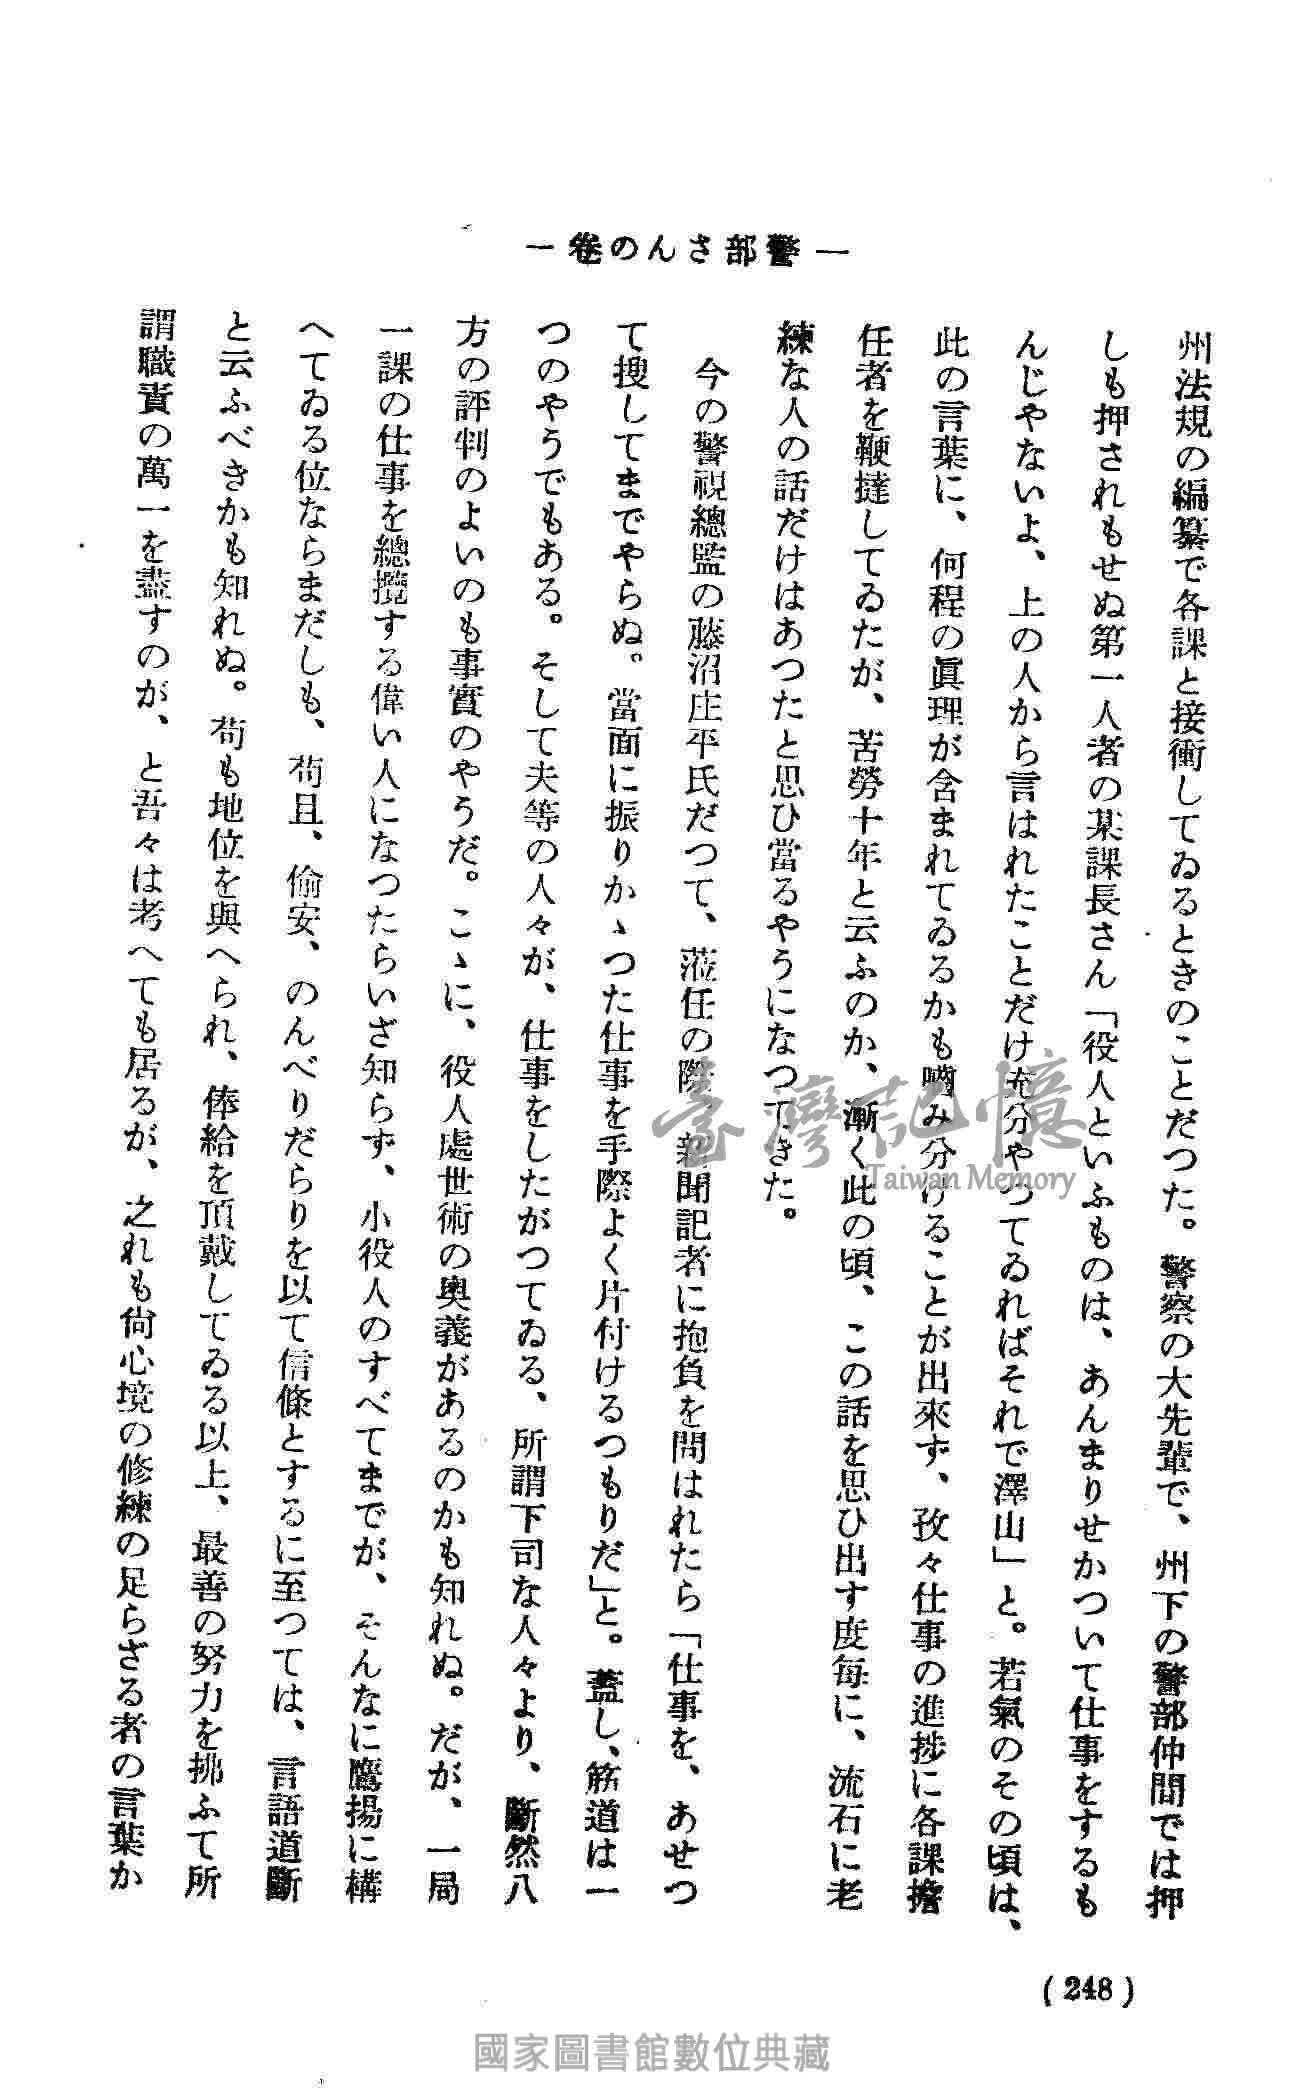 ― 警部さんの卷 ―
州法規の編纂で各課と接衝してゐるときのことだつた。警察の大先輩で、州下の警部仲間では押
しも押されもせぬ第一人者の某課長さん「役人といふものは、あんまりせかついて仕事をするも
んじやないよ、上の人から言はれたことだけ充分やつてゐればそれで澤山」と。若氣のその頃は、
此の言葉に、何程の眞理が含まれてゐるかも嚙み分けることが出來ず、孜々仕事の進捗に各課擔
任者を鞭撻してゐたが、苦勞十年と云ふのか、漸く此の頃、この話を思ひ出す度每に、流石に老
練な人の話だけはあつたと思ひ當るやうになつてきた。
今の警視總監の藤沼庄平氏だつて、蒞任の際、新聞記者に抱負を問はれたら「仕事を、あせつ
て搜してまでやらぬ。當面に振りかゝつた仕事を手際よく片付けるつもりだ」と。蓋し、筋道は一
つのやうでもある。そして夫等の人々が、仕事をしたがつてゐる、所謂下司な人々より、斷然八
方の評判のよいのも事實のやうだ。こゝに、役人處世術の奧義があるのかも知れぬ。だが、一局
一課の仕事を總攬する偉い人になつたらいざ知らず、小役人のすべてまでが、そんなに鷹揚に構
へてゐる位ならまだしも、苟且、偷安、のんべりだらりを以て信條とするに至つては、言語道斷
と云ふべきかも知れぬ。苟も地位を與へられ、俸給を頂戴してゐる以上、最善の努力を拂ふて所
謂職責の萬一を盡すのが、と吾々は考へても居るが、之れも尙心境の修練の足らざる者の言葉か
(248)
臺灣記憶
Taiwan Memory
國家圖書館數位典藏